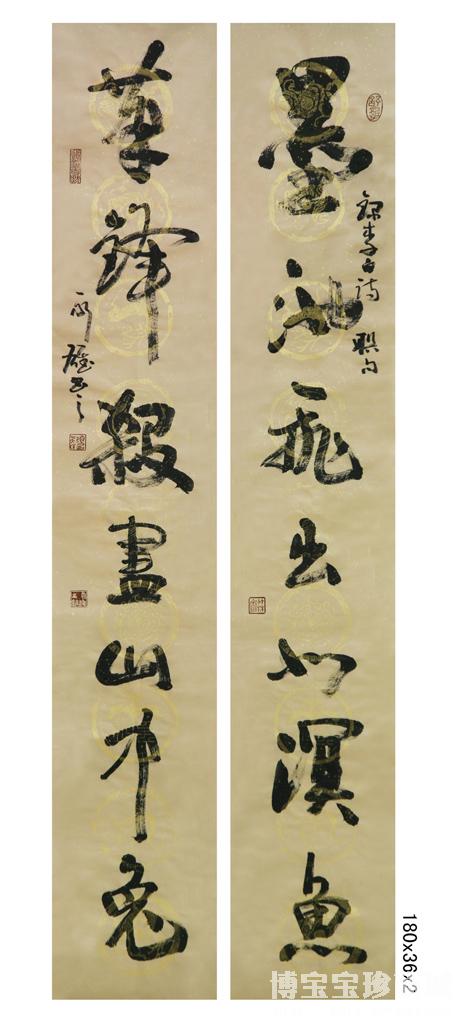 墨池飛出北溟魚
錄李白詩聯句
筆鋒殺盡山中兔
雄書之
180x36x2
博宝宝珍